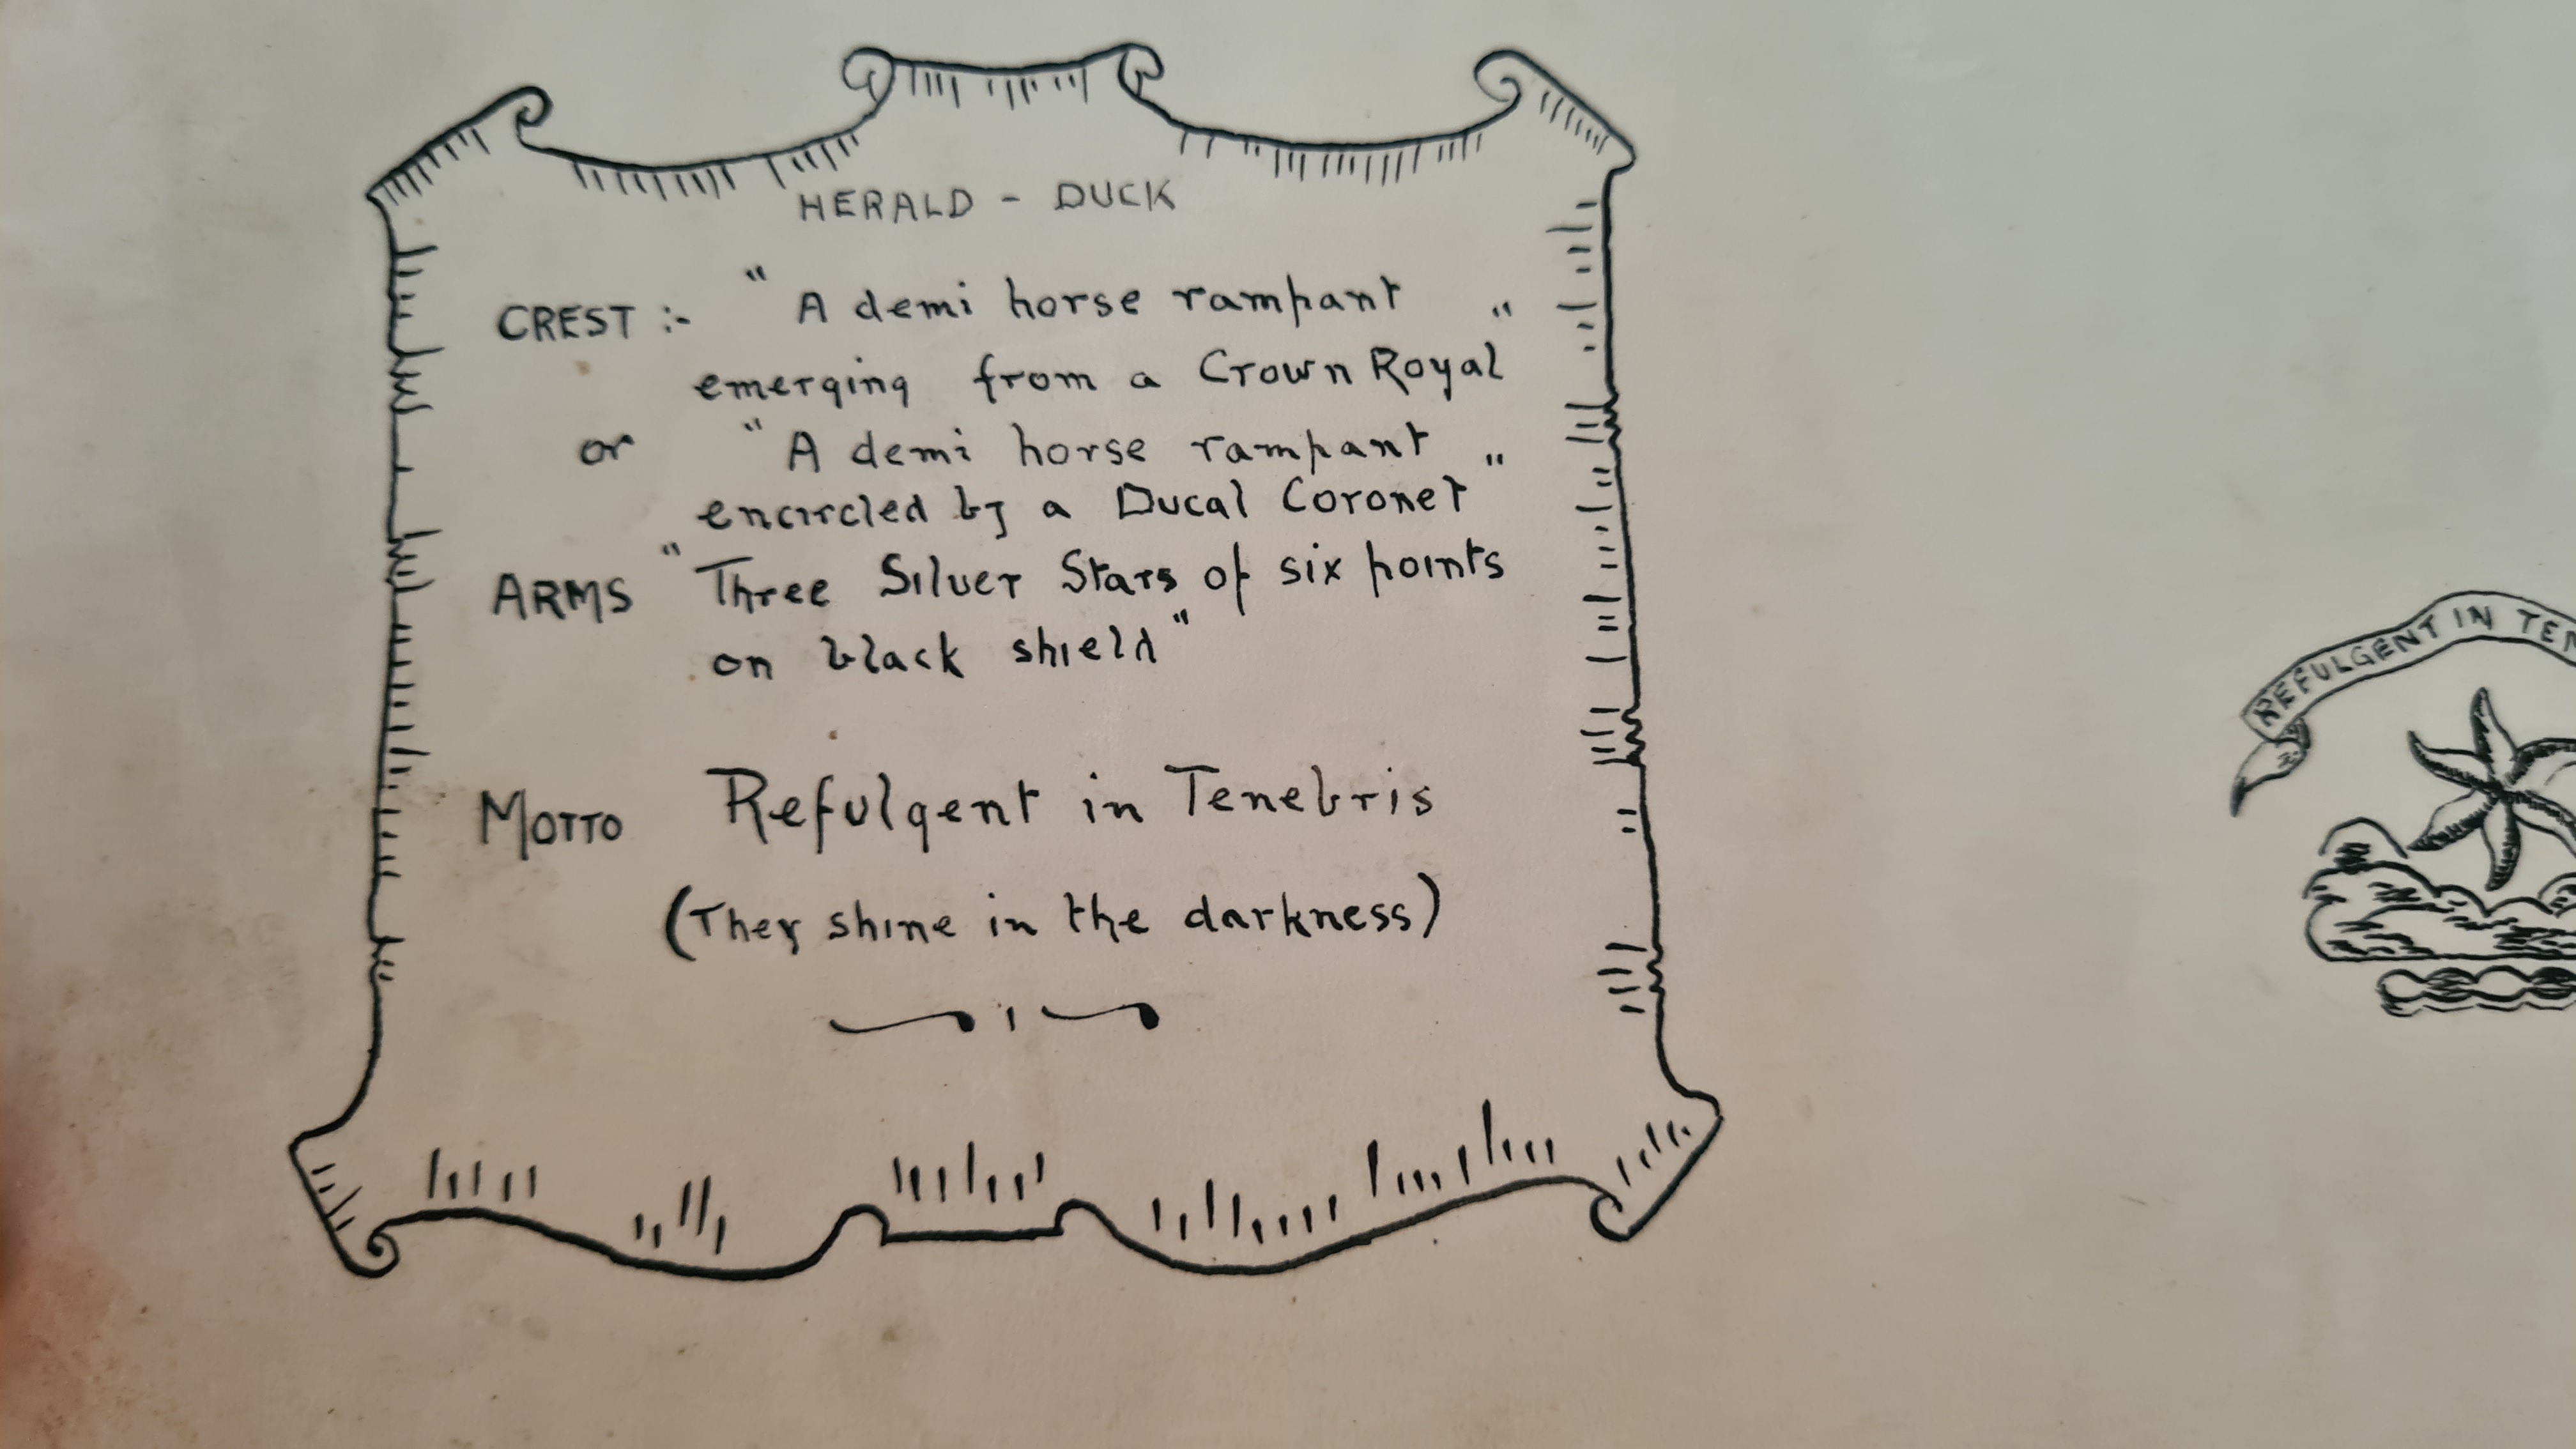 HERALD - DUCK
CREST :- " A demi horse rampant "
emerging from a Crown Royal"
or " A demi horse rampant "
encircled by a Ducal Coronet"
ARMS "Three Silver Stars of six points
on black shield"
MOTTO Refulgent in Tenebris
(They shine in the darkness)
REFULGENT IN